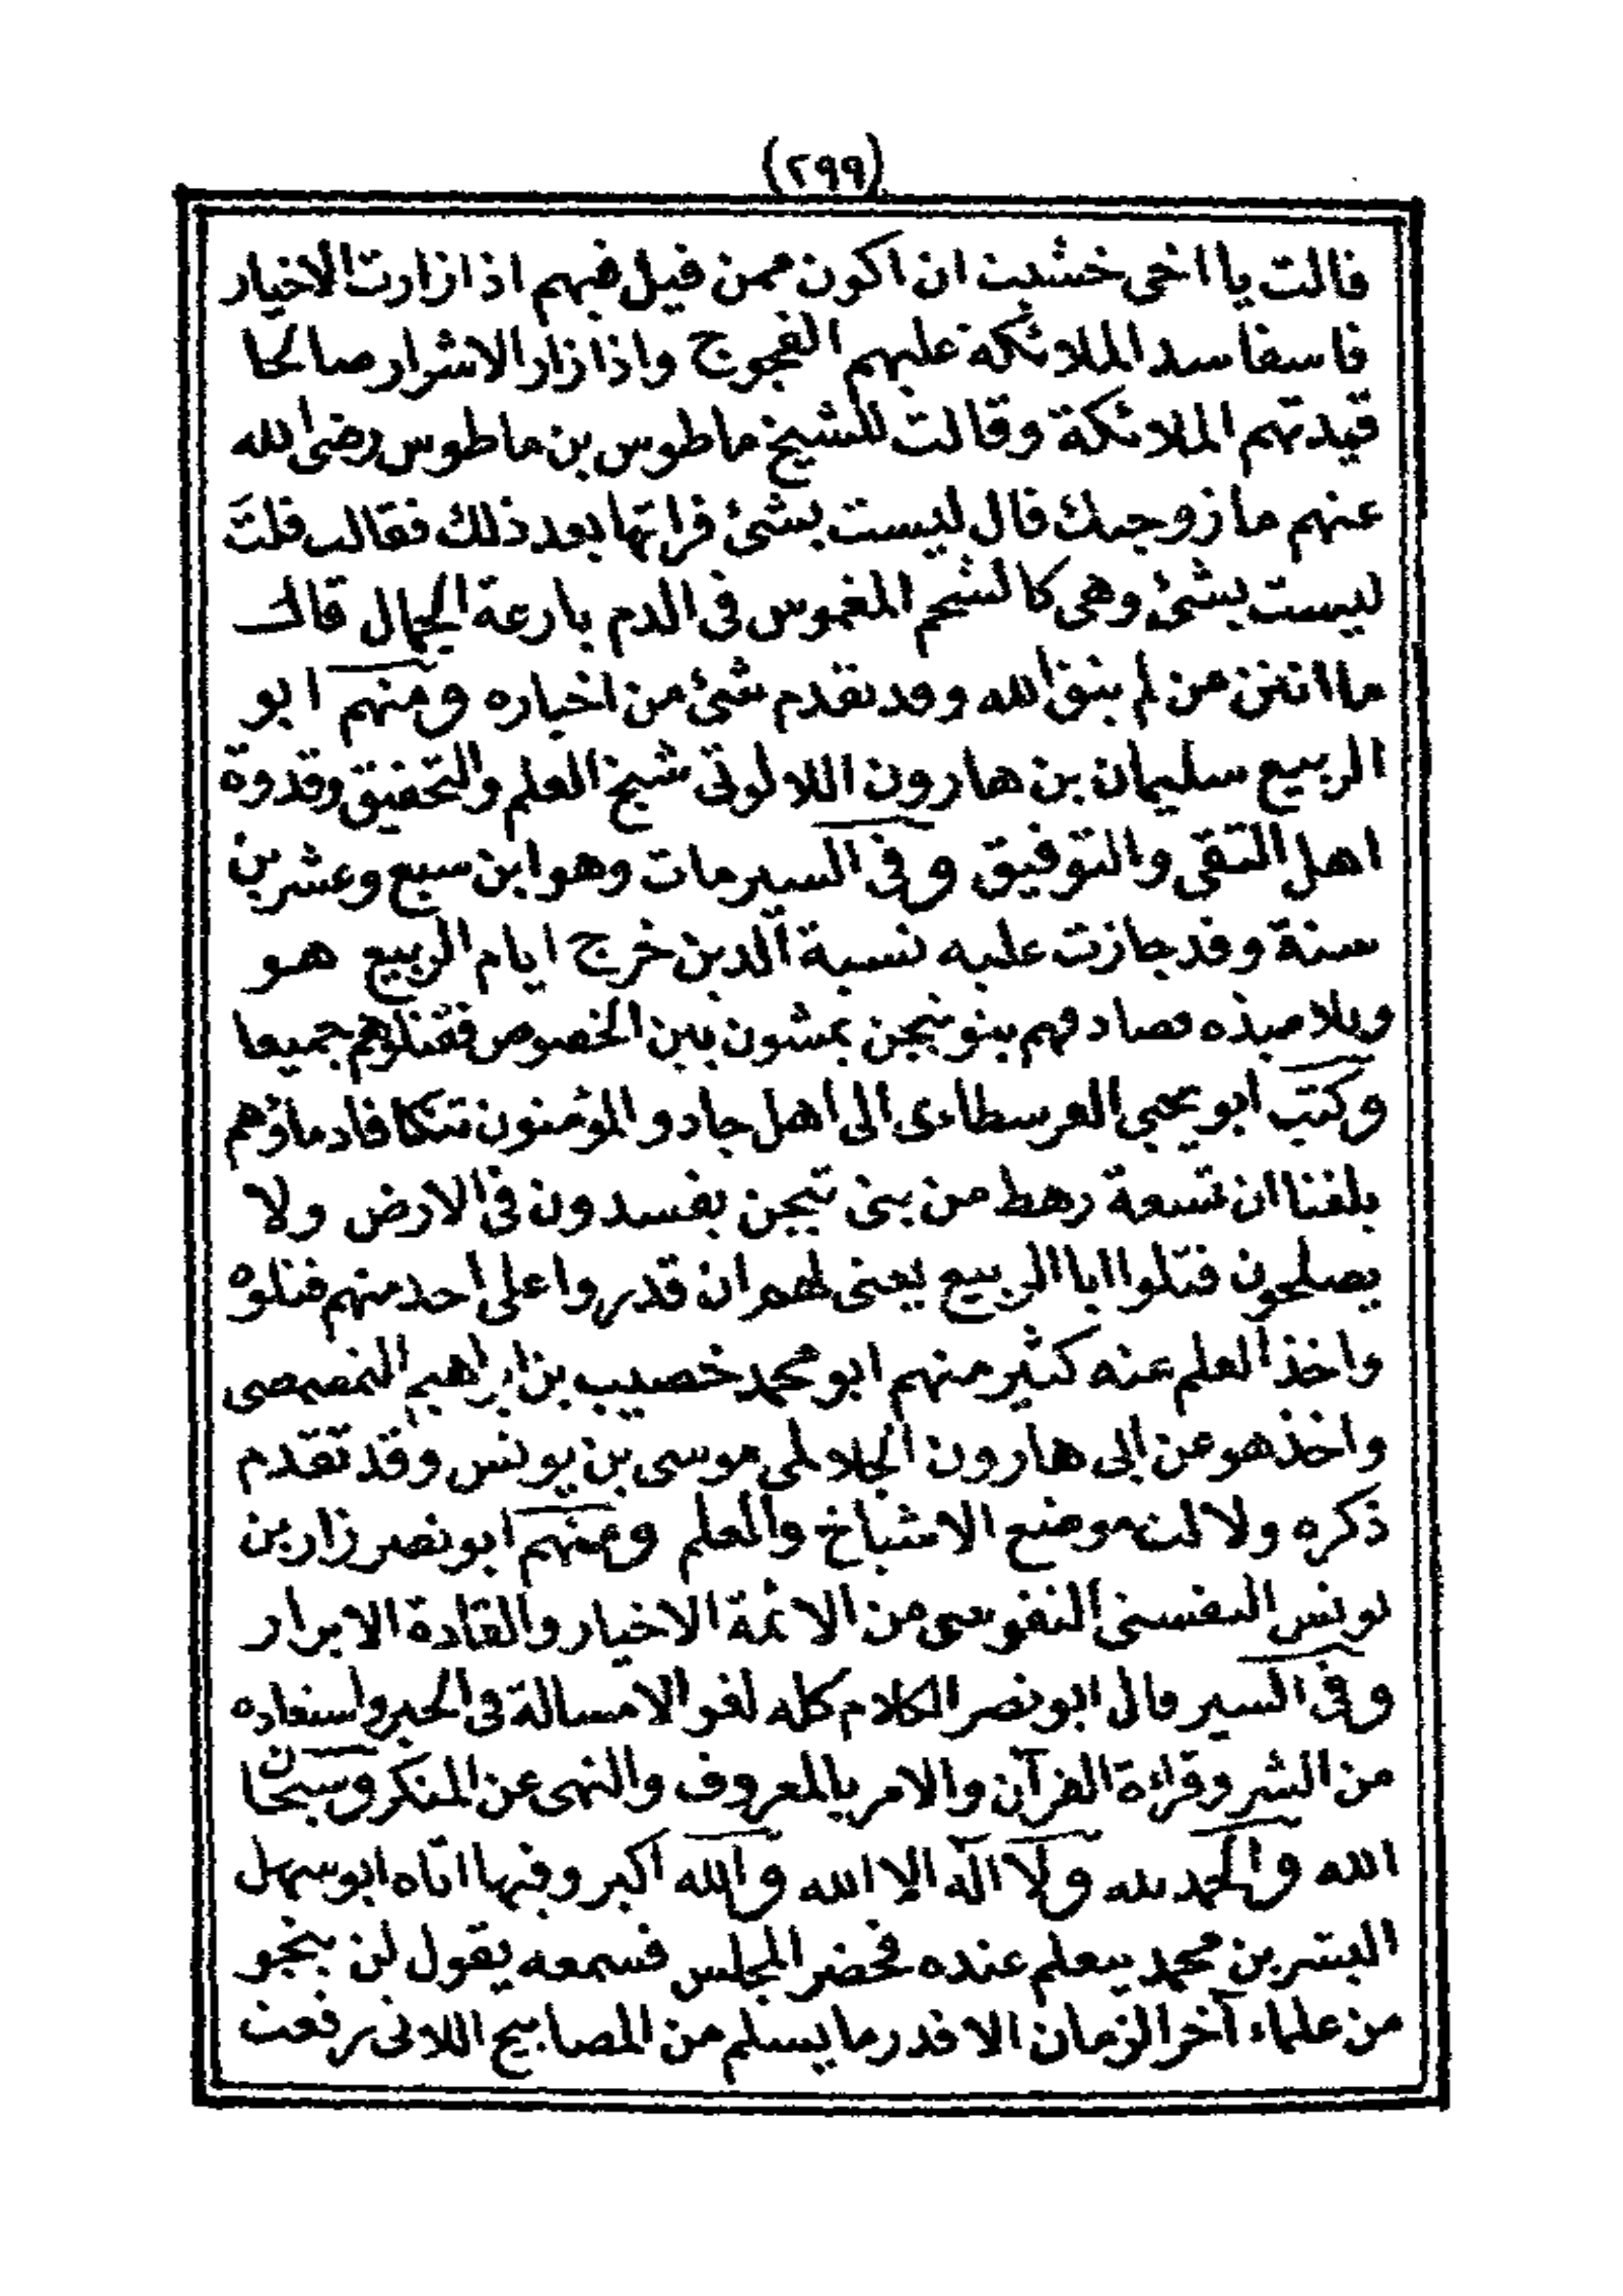 (٢٩٩)
قالت يا اخى خشيت ان اكون ممن قيل فيهم اذا زارت الاخيار
فاسقا سد الملائكة عليهم الفجوج واذا زار الاشرار صالحا
قيدتهم الملائكة وقالت للشيخ ماطوس بن ماطوس رضى الله
عنهم ما زوجك قال ليست بشئ فراتها بعد ذلك فقالت قلت
ليست بشئ وهى كالشحم المغموس فى الدم بارعة الجمال قال
ما انتن من لم يتق الله وقد تقدم شئ من اخباره ومنهم ابو
الربيع سليمان بن هارون اللالوتى شيخ العلم والتحقيق وقدوة
اهل التقى والتوفيق وفى السير مات وهو ابن سبع وعشرين
سنة وقد جازت عليه نسبة الدين خرج ايام الربيع هو
وتلاميذه فصادفهم بنو تيجن يمشون بين الخصوص فقتلوهم جميعا
وكتب ابو يحيى الفرسطاءى الى اهل جادو المؤمنون تتكافا دماؤهم
بلغنا ان تسعة رهط من بنى تيجن يفسدون فى الارض ولا
يصلحون قتلوا ابا الربيع يعنى لهم ان قدروا على احد منهم قتلوه
واخذ العلم عنه كثير منهم ابو محمد خصيب بن ابراهيم التمصمصى
واخذ هو عن ابى هارون الجلالمى موسى بن يونس وقد تقدم
ذكره ولالت موضع الاشياخ والعلم ومنهم ابو نصر زار بن
يونس التفستى النفوسى من الائمة الاخيار والقادة الابرار
وفى السير قال ابو نصر الكلام كله لغو الا مسالة فى الخير واستعاذه
من الشر وقراءة القرآن والامر بالمعروف والنهى عن المنكر وسبحان
الله والحمد لله ولا اله الا الله والله اكبر وفيها اتاه ابو سهل
البشر بن محمد يتعلم عنده فحضر المجلس فسمعه يقول لن ينجو
من علماء آخر الزمان الا قدر ما يسلم من المصابيح اللاتى رفعت